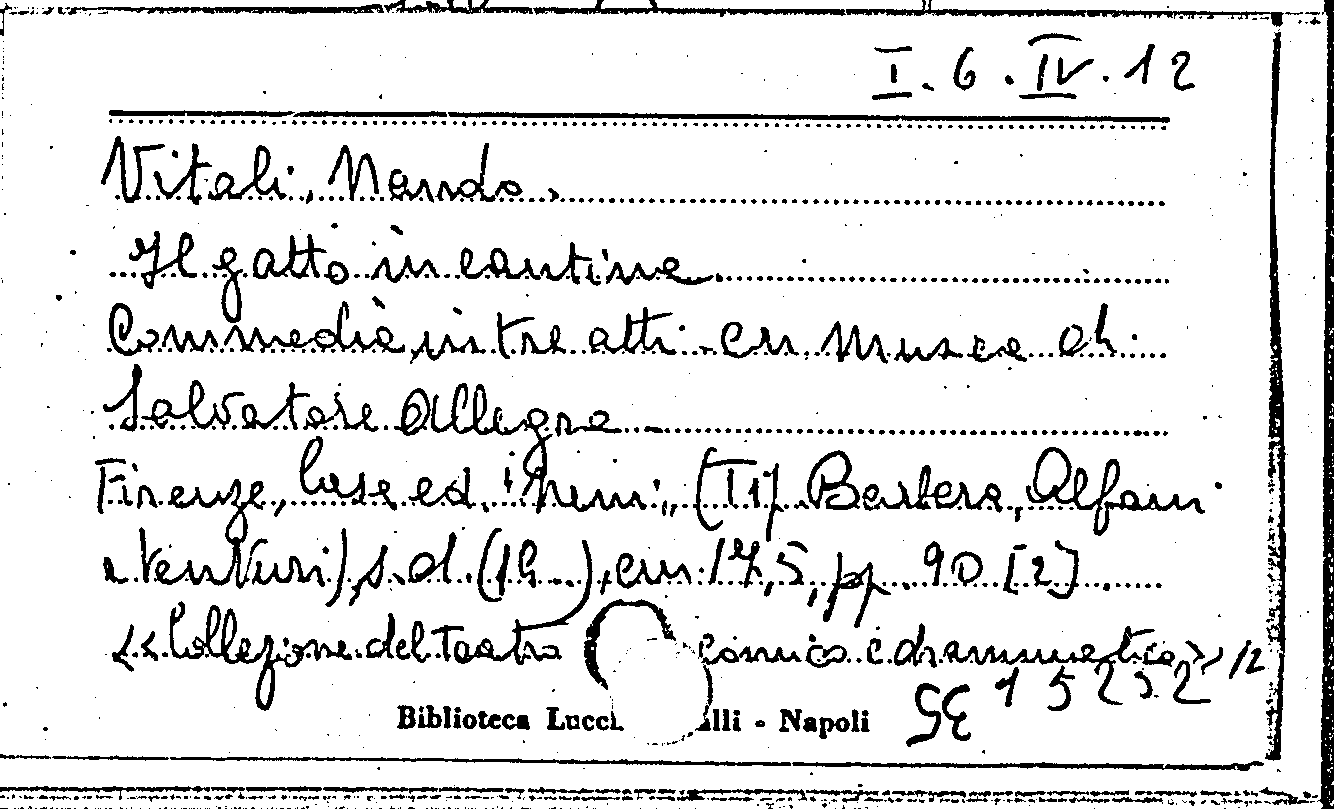 I. 6. IV. 12
Vitali, Nando.
Il gatto in cantina
Commedia in tre atti. Con musica di
Salvatore Allegra
Firenze, Casa ed. "Nemi", (Tip. Barbera, Alfani
e Venturi), s.d. (19..), cm 17,5, pp. 90 [2]
<<Collezione del Teatro comico e drammatico>>, 12
Biblioteca Lucc lli - Napoli
SE 15252